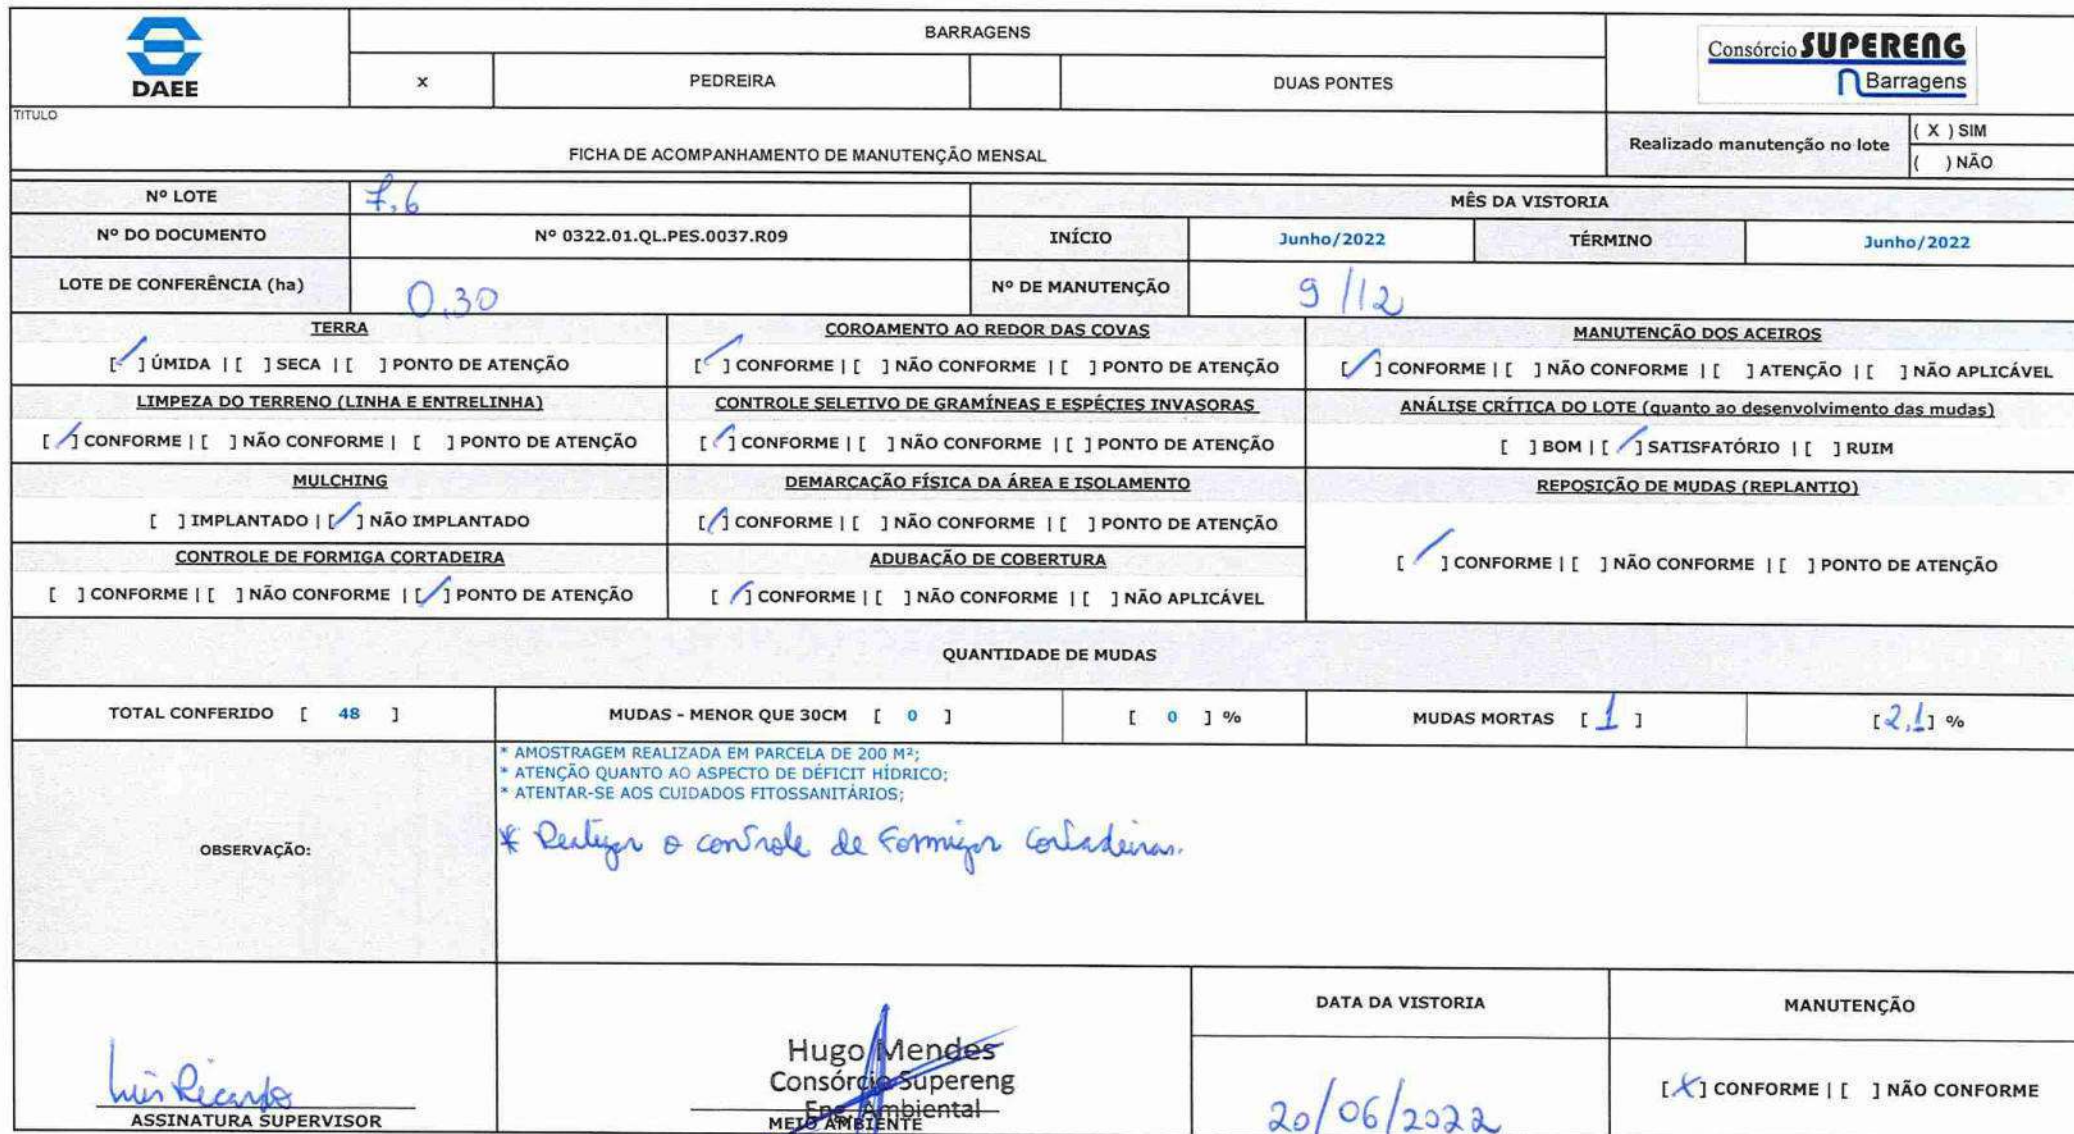 DAEE
BARRAGENS
x PEDREIRA DUAS PONTES
Consórcio SUPERENG
Barragens
TITULO
FICHA DE ACOMPANHAMENTO DE MANUTENÇÃO MENSAL
Realizado manutenção no lote
( X ) SIM
( ) NÃO
Nº LOTE 7,6
MÊS DA VISTORIA
Nº DO DOCUMENTO Nº 0322.01.QL.PES.0037.R09 INÍCIO Junho/2022 TÉRMINO Junho/2022
LOTE DE CONFERÊNCIA (ha) 0,30 Nº DE MANUTENÇÃO 9/12
TERRA
[/] ÚMIDA | [ ] SECA | [ ] PONTO DE ATENÇÃO
COROAMENTO AO REDOR DAS COVAS
[/] CONFORME | [ ] NÃO CONFORME | [ ] PONTO DE ATENÇÃO
MANUTENÇÃO DOS ACEIROS
[/] CONFORME | [ ] NÃO CONFORME | [ ] ATENÇÃO | [ ] NÃO APLICÁVEL
LIMPEZA DO TERRENO (LINHA E ENTRELINHA)
[/] CONFORME | [ ] NÃO CONFORME | [ ] PONTO DE ATENÇÃO
CONTROLE SELETIVO DE GRAMÍNEAS E ESPÉCIES INVASORAS
[/] CONFORME | [ ] NÃO CONFORME | [ ] PONTO DE ATENÇÃO
ANÁLISE CRÍTICA DO LOTE (quanto ao desenvolvimento das mudas)
[ ] BOM | [/] SATISFATÓRIO | [ ] RUIM
MULCHING
[ ] IMPLANTADO | [/] NÃO IMPLANTADO
DEMARCAÇÃO FÍSICA DA ÁREA E ISOLAMENTO
[/] CONFORME | [ ] NÃO CONFORME | [ ] PONTO DE ATENÇÃO
REPOSIÇÃO DE MUDAS (REPLANTIO)
[/] CONFORME | [ ] NÃO CONFORME | [ ] PONTO DE ATENÇÃO
CONTROLE DE FORMIGA CORTADEIRA
[ ] CONFORME | [ ] NÃO CONFORME | [/] PONTO DE ATENÇÃO
ADUBAÇÃO DE COBERTURA
[/] CONFORME | [ ] NÃO CONFORME | [ ] NÃO APLICÁVEL
QUANTIDADE DE MUDAS
TOTAL CONFERIDO [ 48 ] MUDAS - MENOR QUE 30CM [ 0 ] [ 0 ] % MUDAS MORTAS [ 1 ] [2,1] %
OBSERVAÇÃO:
* AMOSTRAGEM REALIZADA EM PARCELA DE 200 M²;
* ATENÇÃO QUANTO AO ASPECTO DE DÉFICIT HÍDRICO;
* ATENTAR-SE AOS CUIDADOS FITOSSANITÁRIOS;
* Realizar o controle de Formigas Cortadeiras.
Luis Ricardo
ASSINATURA SUPERVISOR
Hugo Mendes
Consórcio Supereng
Eng. Ambiental
MEIO AMBIENTE
DATA DA VISTORIA
20/06/2022
MANUTENÇÃO
[X] CONFORME | [ ] NÃO CONFORME